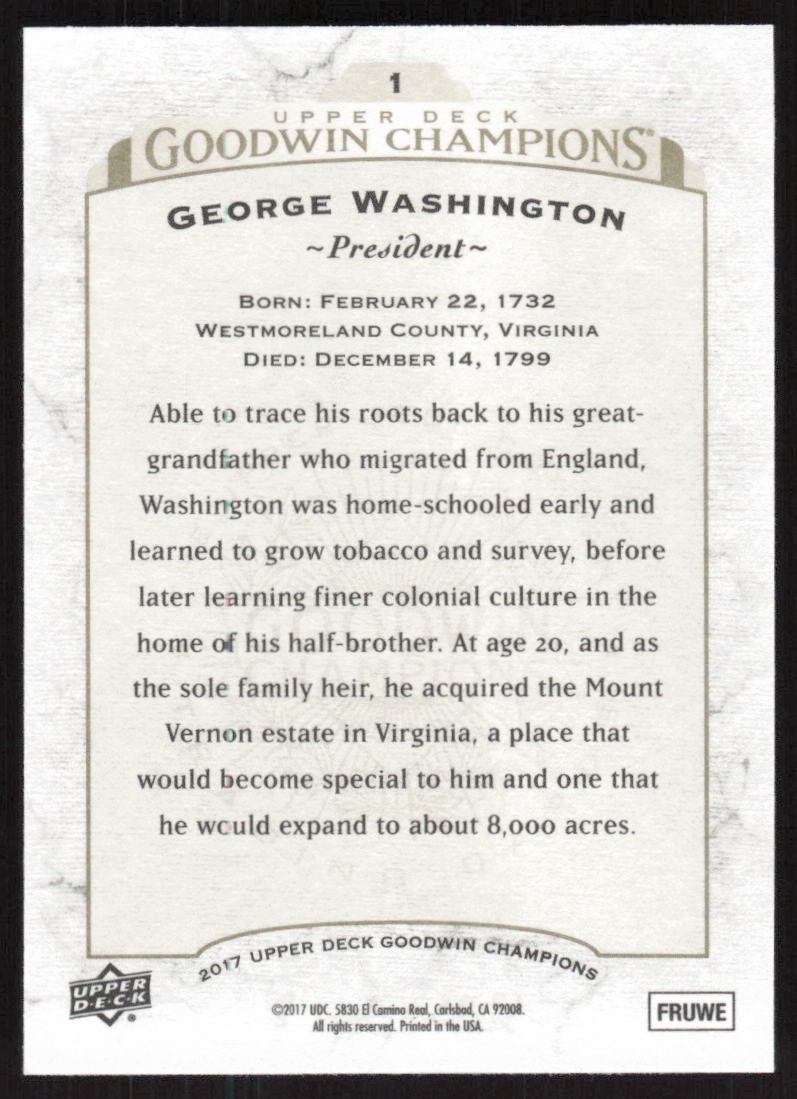 1
UPPER DECK
GOODWIN CHAMPIONS®
GEORGE WASHINGTON
~President~
BORN: FEBRUARY 22, 1732
WESTMORELAND COUNTY, VIRGINIA
DIED: DECEMBER 14, 1799
Able to trace his roots back to his great-
grandfather who migrated from England,
Washington was home-schooled early and
learned to grow tobacco and survey, before
later learning finer colonial culture in the
home of his half-brother. At age 20, and as
the sole family heir, he acquired the Mount
Vernon estate in Virginia, a place that
would become special to him and one that
he would expand to about 8,000 acres.
2017 UPPER DECK GOODWIN CHAMPIONS
UPPER
D·E·C·K®
©2017 UDC. 5830 El Camino Real, Carlsbad, CA 92008.
All rights reserved. Printed in the USA.
FRUWE